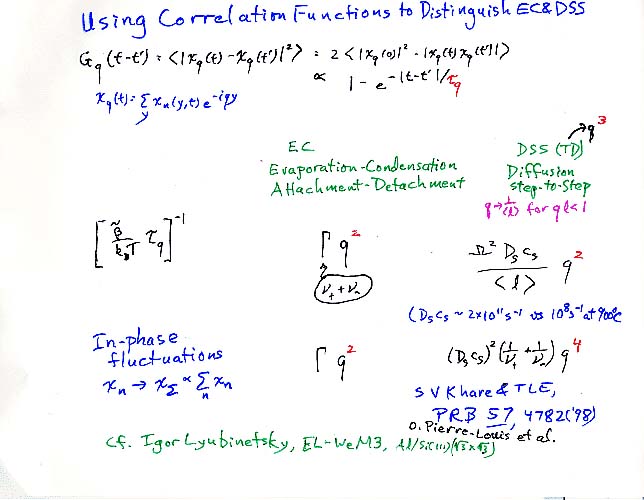 Using Correlation Functions to Distinguish EC & DSS
G_q(t-t') = <|x_q(t) - x_q(t')|²> = 2<|x_q(0)|² - |x_q(t) x_q(t')|>
∝ 1 - e^{-|t-t'|/τ_q}
x_q(t) = Σ_y x_n(y,t) e^{-iqy}
E.C.
Evaporation-Condensation
Attachment-Detachment
DSS (TD) → q³
Diffusion
step-to-step
q → 1/⟨l⟩ for ql < 1
[β̃/(k_BT) τ_q]⁻¹
Γ q²
ν₊ + ν₋
Ω² D_s c_s / <l> q²
(D_s c_s ~ 2×10¹¹ s⁻¹ vs 10⁸ s⁻¹ at 900°C
In-phase
fluctuations
x_n → x_Σ ∝ Σ_n x_n
Γ q²
(D_s c_s)² (1/ν₊ + 1/ν₋) q⁴
S V Khare & TLE,
PRB 57, 4782 ('98)
O. Pierre-Louis et al.
cf. Igor Lyubinetsky, EL-WeM3, Al/Si(111)(√3×√3)